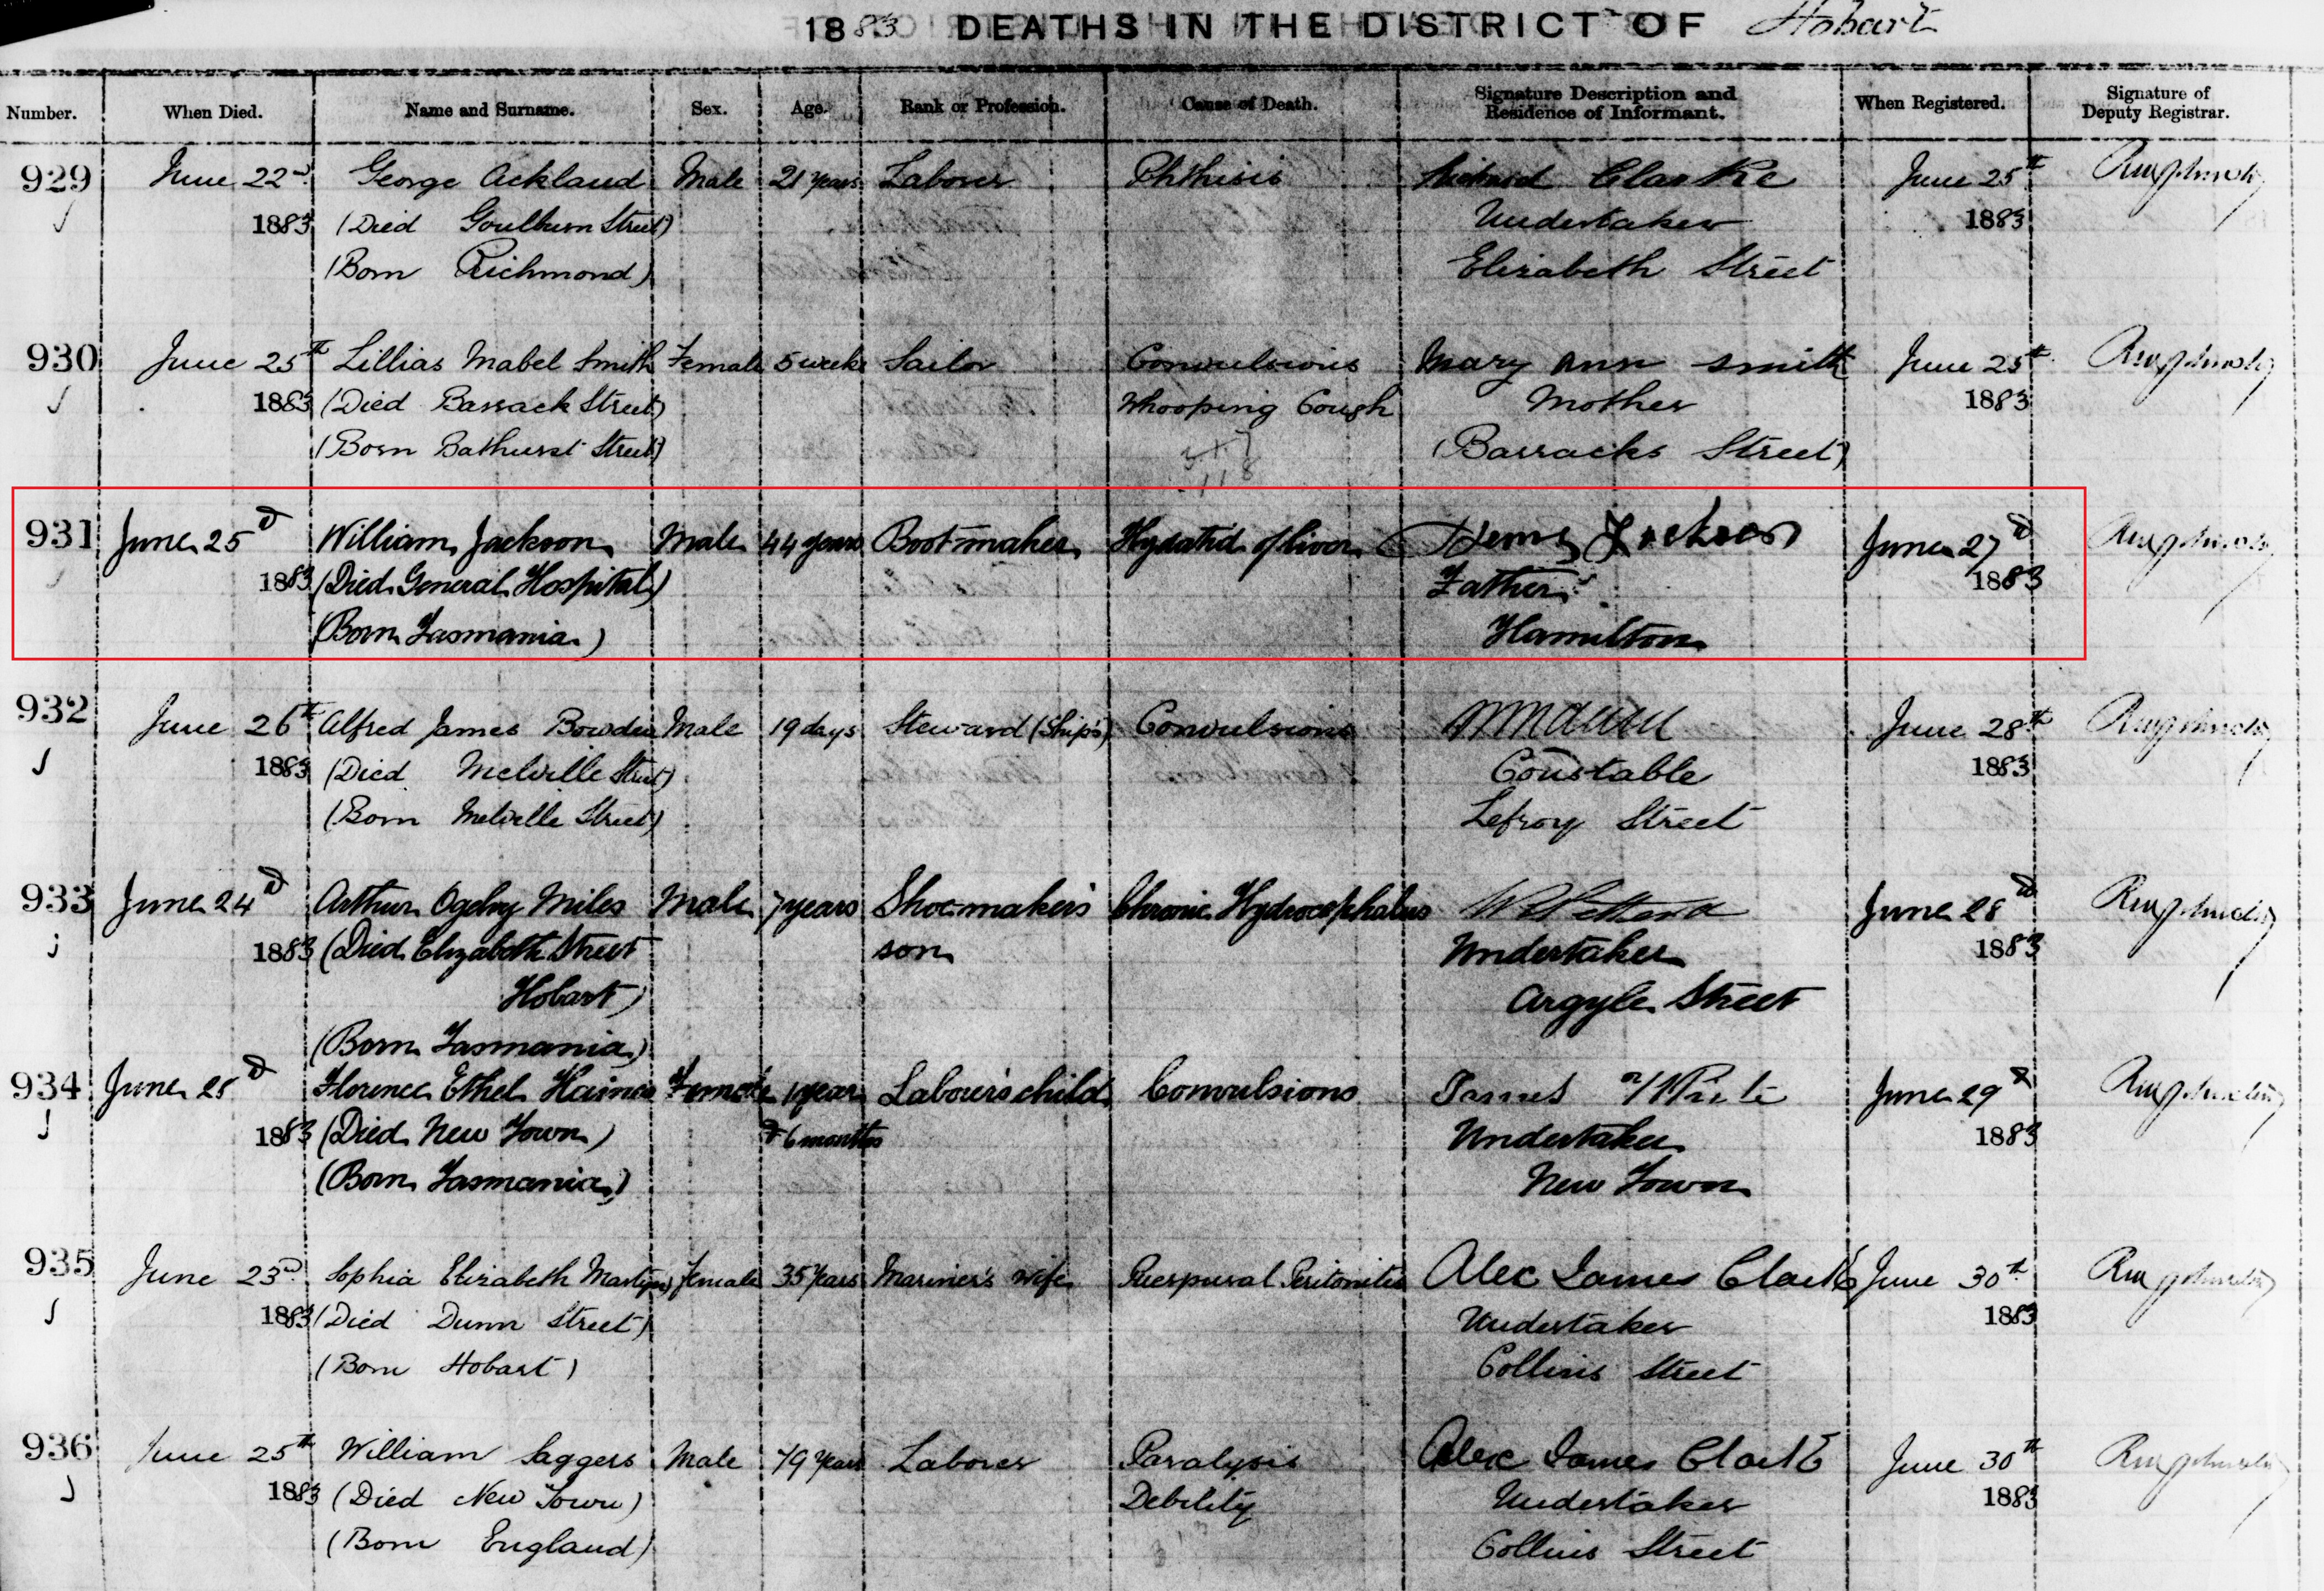 1883 DEATHS IN THE DISTRICT OF Hobart
Number. When Died. Name and Surname. Sex. Age. Rank or Profession. Cause of Death. Signature Description and Residence of Informant. When Registered. Signature of Deputy Registrar.
929 June 22d George Ackland Male 21 years Laborer Phthisis Richard Clarke June 25th
1883 (Died Goulburn Street) Undertaker 1883
(Born Richmond) Elizabeth Street
930 June 25th Lillias Mabel Smith Female 5 weeks Sailor Convulsions Mary Ann Smith June 25th
1883 (Died Barrack Street) Whooping Cough Mother 1883
(Born Bathurst Street) (Barracks Street)
931 June 25 William Jackson Male 44 years Bootmaker Hydatid of liver Jackson June 27
1883 (Died General Hospital) Father 1883
(Born Tasmania) Hamilton
932 June 26th Alfred James Bowden Male 19 days Steward (Ship's) Convulsions June 28th
1883 (Died Melville Street) Constable 1883
(Born Melville Street) Lefroy Street
933 June 24 Arthur Ogelvy Miles Male 7 years Shoemaker's Chronic Hydrocephalus June 28
1883 (Died Elizabeth Street son Undertaker 1883
Hobart) Argyle Street
(Born Tasmania)
934 June 28 Florence Ethel Haines Female 1 year Labour's child Convulsions James June 29
1883 (Died New Town) & 6 months Undertaker 1883
(Born Tasmania) New Town
935 June 23d Sophia Elizabeth Martyn Female 35 Years Mariner's wife Puerpural Peritonitis Alec James Clark June 30th
1883 (Died Dunn Street) Undertaker 1883
(Born Hobart) Collins Street
936 June 25th William Saggers Male 79 Years Laborer Paralysis Alec James Clark June 30th
1883 (Died New Town) Debility Undertaker 1883
(Born England) Collins Street